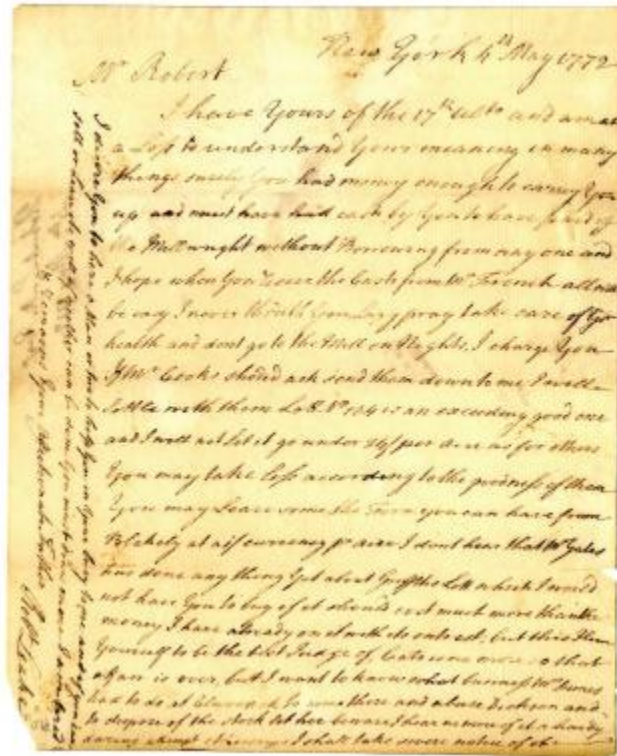 New York 4th May 1772
Mr Robert
I have Yours of the 17th Ulto and am at
a Loss to understand Your meaning in many
things surely You had money enough to carry You
up and must have had cash by You to have paid of
the Millwright without Borrowing from any one and
I hope when You the Cash from Mr French all will
be easy I never thought You Lazy pray take care of Yr
health and dont go to the Mill on Nights, I charge You
If Mr Cooks should ack send them down to me I will
Settle with them Lott No 104 is an exceeding good one
and I will not Let it go under per Acre as for others
You may take Less according to the goodness of them
You may Lease some the Farm you can have from
Blakely at currency pr acre I dont hear that Mr Yates
has done any thing Yet about Lott which I would
not have You to buy if it should cost much more than the
money I have already on it with its but this I Leave
Yourself to be the best Judge of, so that
affair is over, but I want to know what business Mr
had to do at to come there and abuse and
to dispose of the Stock let her beware I hear no more of
daring I shall take severe notice of
I desire You to hire a Man or two to help You in Your
sell or Lease to well if neither can be done You must I am tired
Your Affectionate Father
Robt Leake